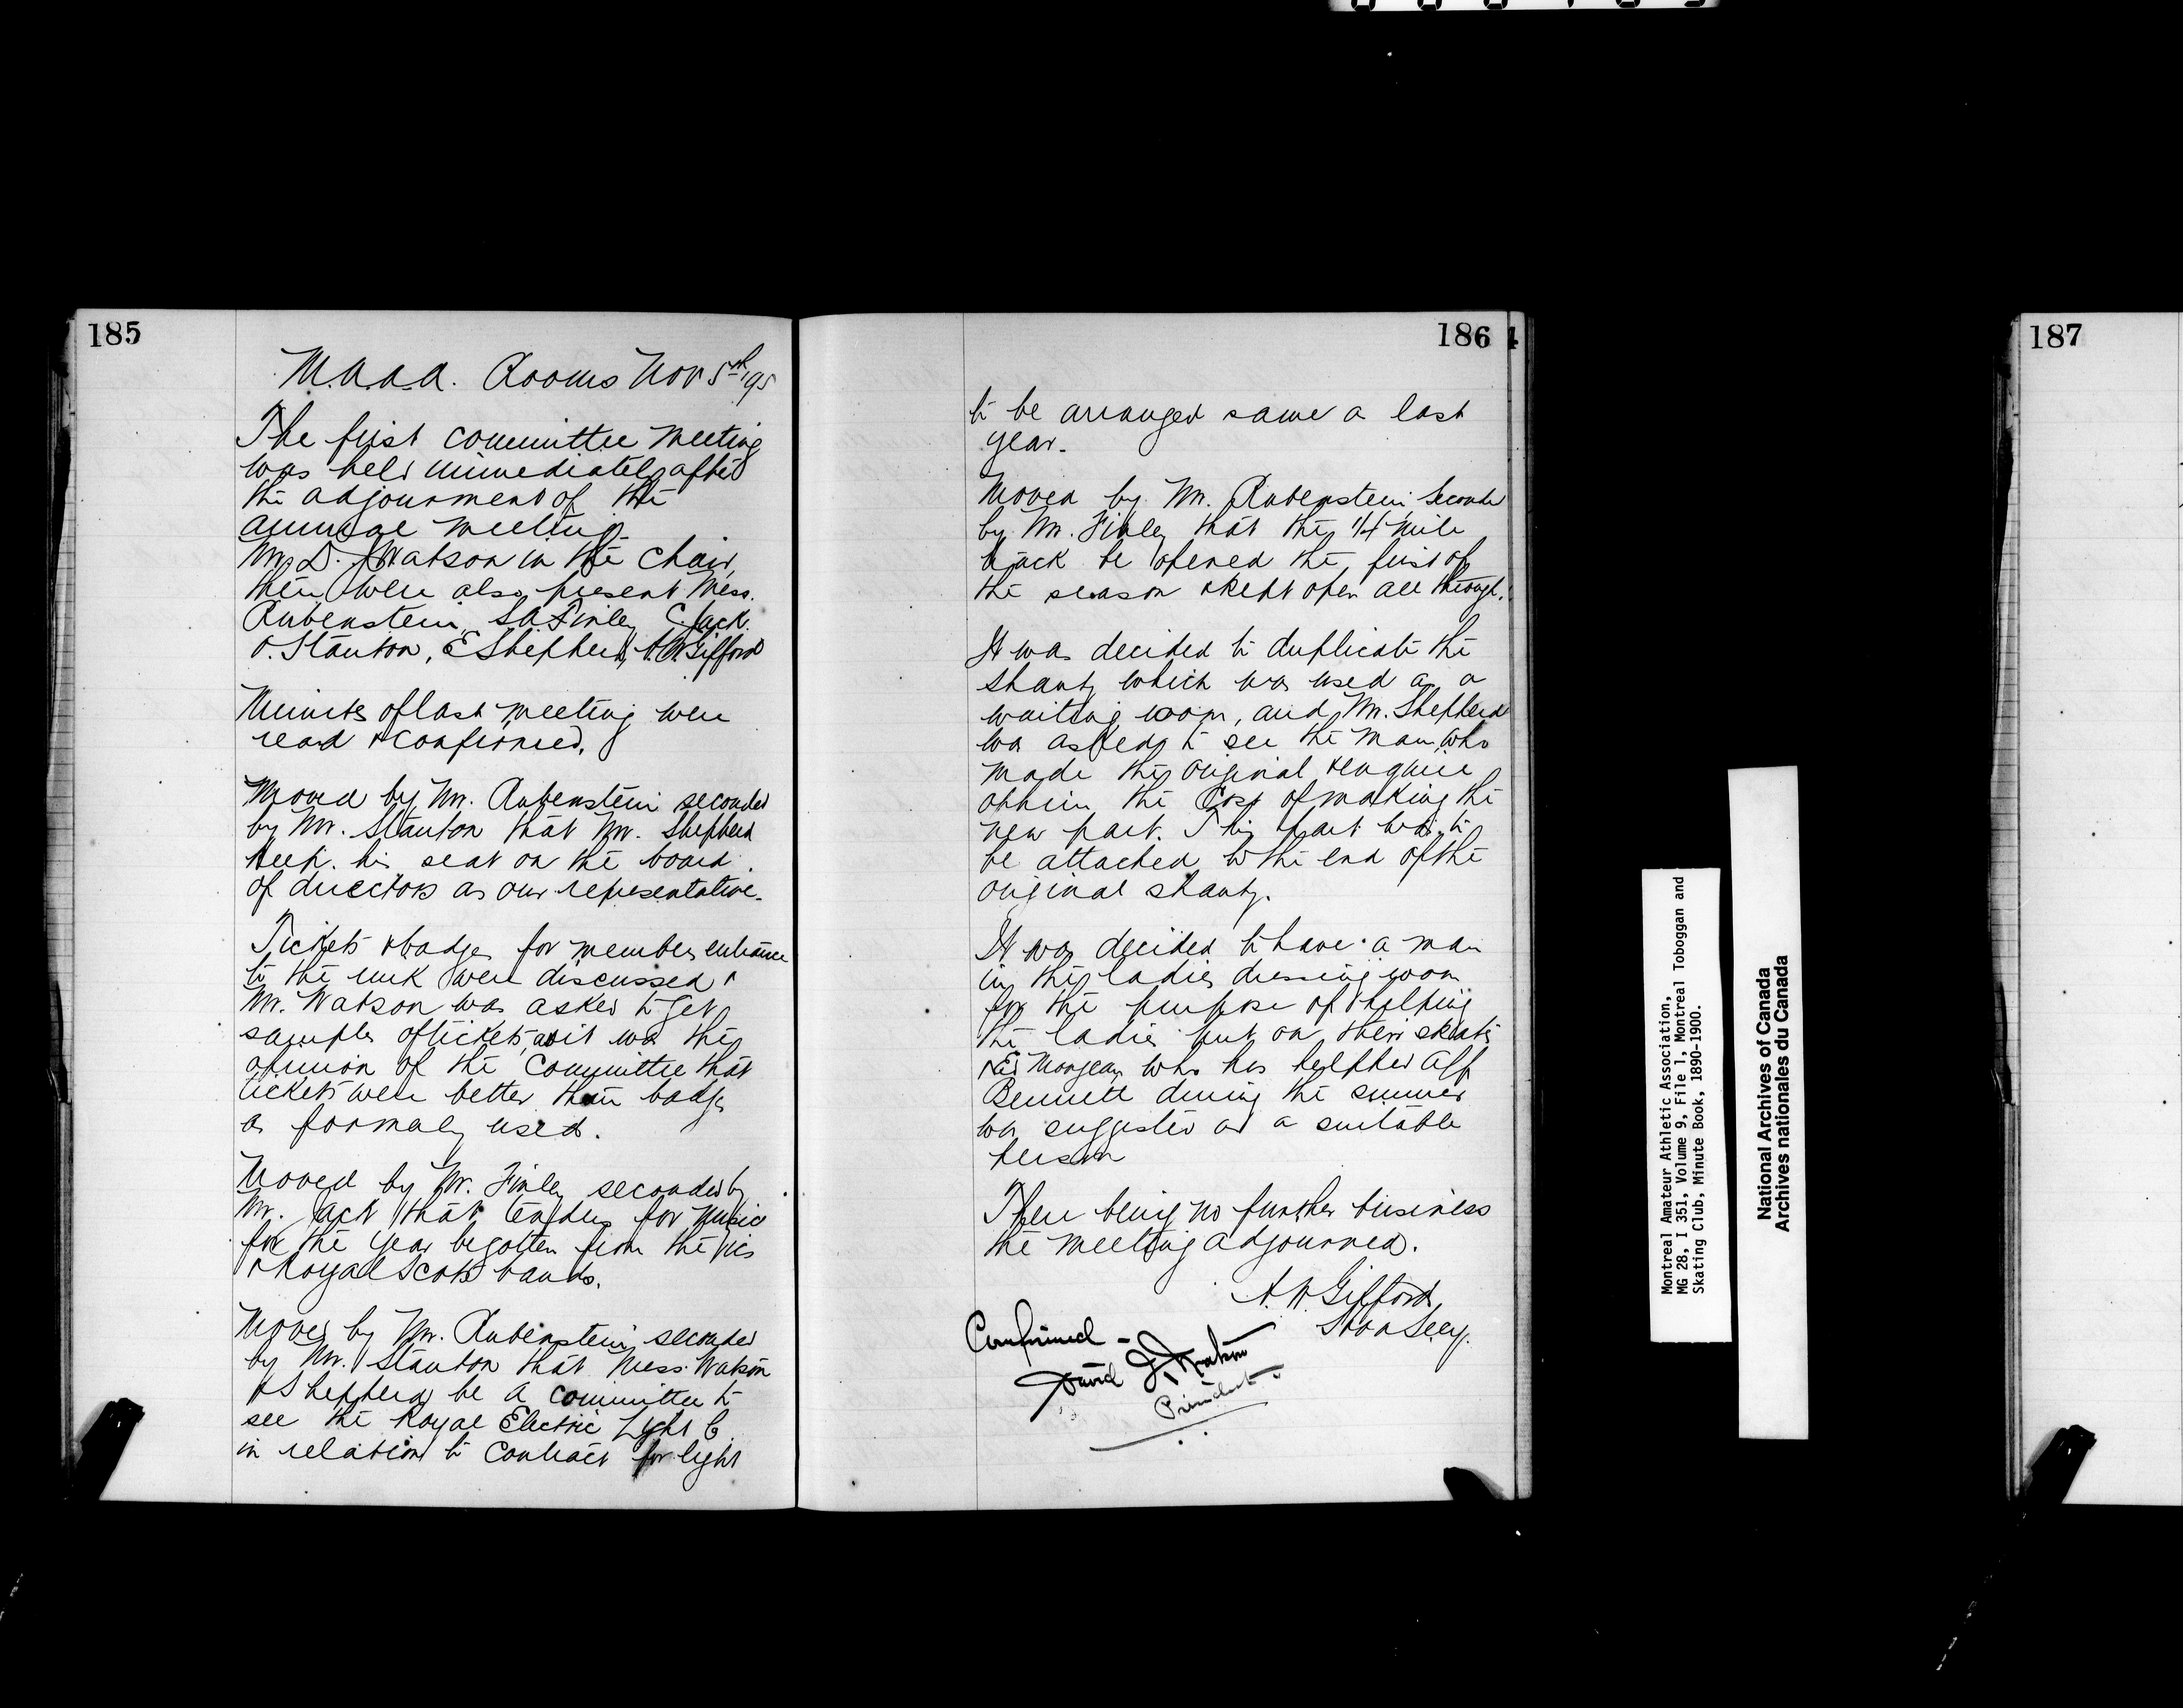 185
M.A.A.A. Rooms Nov 5th '95
The first committee meeting
was held immediately after
the adjournment of the
annual meeting.
Mr D. J. Watson in the chair,
there were also present Mess.
Rubenstein, S A Finley C. Jack.
O. Stanton, E Shepherd, A. W. Gifford
Minutes of last meeting were
read & confirmed.
Moved by Mr. Rubenstein seconded
by Mr. Stanton that Mr. Shepherd
keep his seat on the board
of directors as our representative.
Tickets & badges for members entrance
to the rink were discussed &
Mr. Watson was asked to get
samples of tickets, as it was the
opinion of the Committee that
tickets were better than badges
as formaly used.
Moved by Mr. Finley seconded by
Mr. Jack that tenders for music
for the year be gotten from the Vics
& Royal Scots bands.
Moved by Mr. Rubenstein seconded
by Mr. Stanton that Mess. Watson
& Shepherd be a committee to
see the Royal Electric Light Co
in relation to contract for light
186
to be arranged same a last
year.
Moved by Mr. Rubenstein, Seconded
by Mr. Finley that the 1/4 mile
track be opened the first of
the season & kept open all through.
It was decided to duplicate the
shanty which was used as a
waiting room, and Mr. Shepherd
was asked to see the man who
made the original & enquire
obtain the Cost of making the
new part. This part was to
be attached to the end of the
original shanty.
It was decided to have a man
in the ladies dressing room
for the purpose of helping
the ladies put on their skates
& Ed Mongeau who has helpher Alf
Bennett during the summer
was suggested as a suitable
person
There being no further business
the meeting adjourned.
A. W. Gifford,
Hon Secy.
Confirmed -
David J. Watson
President
187
Montreal Amateur Athletic Association,
MG 28, I 351, Volume 9, File 1, Montreal Toboggan and
Skating Club, Minute Book, 1890-1900.
National Archives of Canada
Archives nationales du Canada